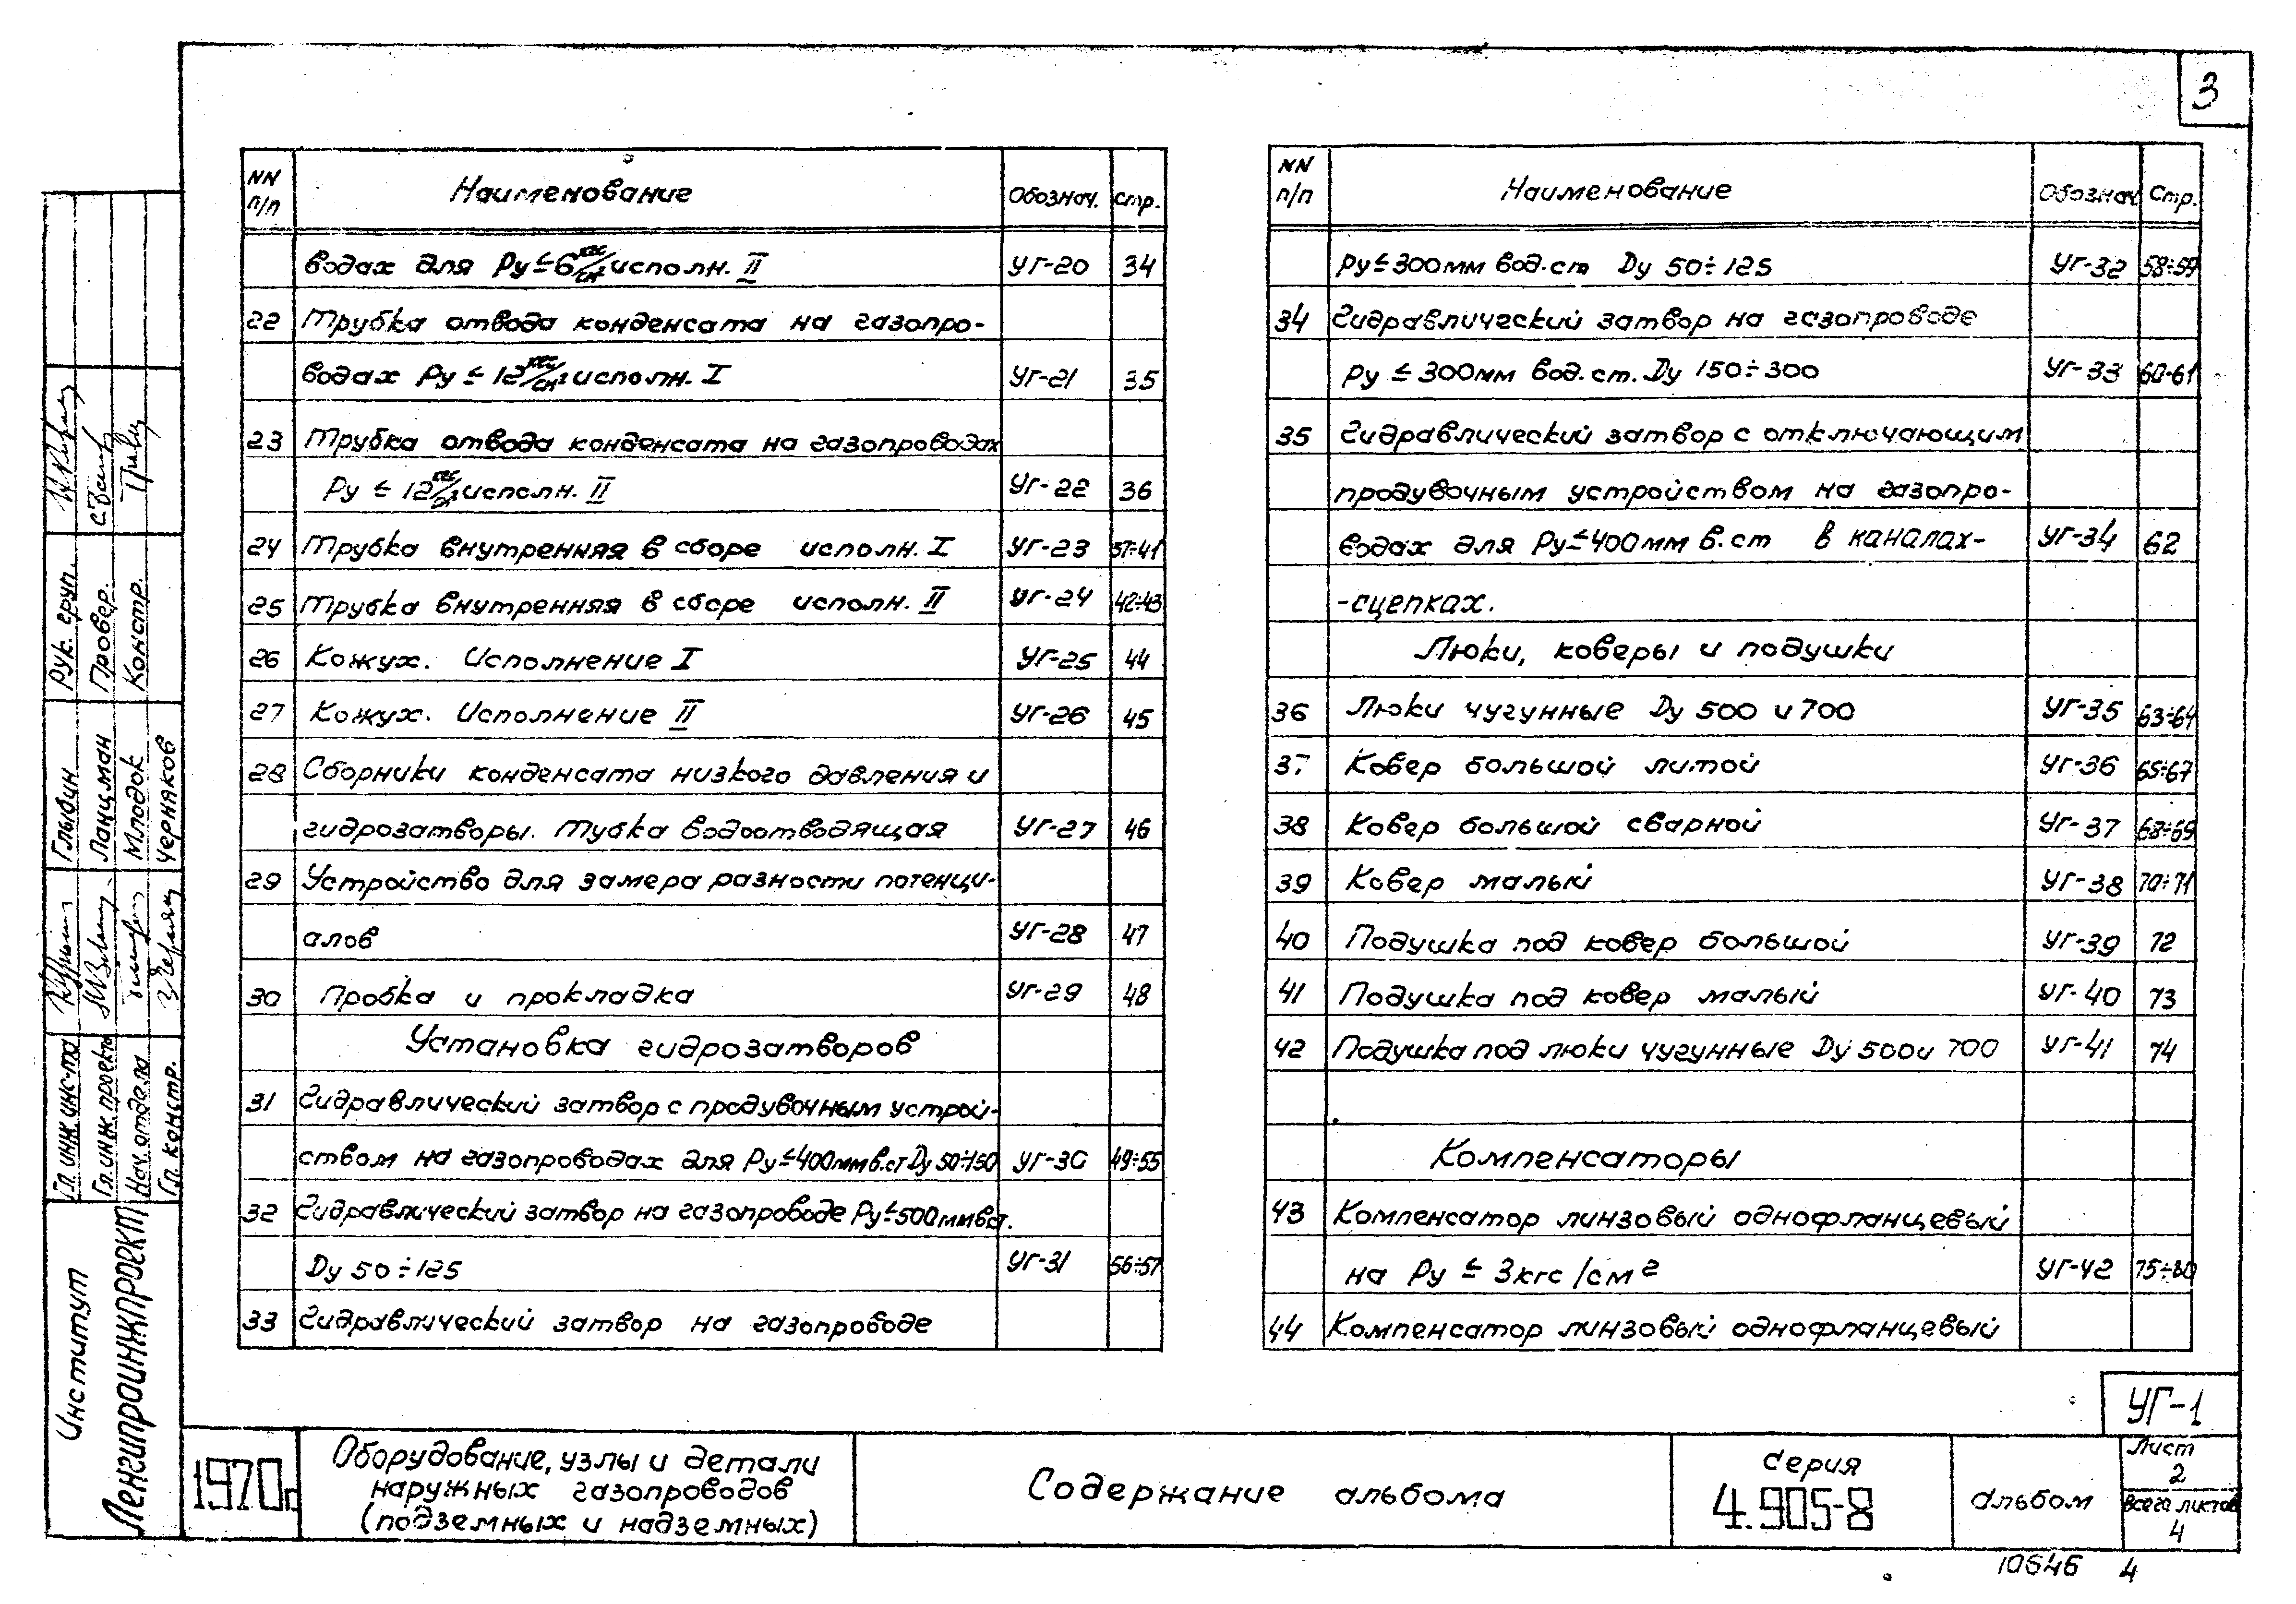 3
NN п/п Наименование Обознач. Стр.
водах для Ру≤6 кгс/см² исполн. II УГ-20 34
22 Трубка отвода конденсата на газопро-
водах Ру ≤ 12 кгс/см² исполн. I УГ-21 35
23 Трубка отвода конденсата на газопроводах
Ру ≤ 12 кгс/см² исполн. II УГ-22 36
24 Трубка внутренняя в сборе исполн. I УГ-23 37÷41
25 Трубка внутренняя в сборе исполн. II УГ-24 42÷43
26 Кожух. Исполнение I УГ-25 44
27 Кожух. Исполнение II УГ-26 45
28 Сборники конденсата низкого давления и
гидрозатворы. Тубка водоотводящая УГ-27 46
29 Устройство для замера разности потенци-
алов УГ-28 47
30 Пробка и прокладка УГ-29 48
Установка гидрозатворов
31 Гидравлический затвор с продувочным устрой-
ством на газопроводах для Ру≤400мм в.ст Ду 50÷150 УГ-30 49÷55
32 Гидравлический затвор на газопроводе Ру≤500мм в.ст.
Ду 50÷125 УГ-31 56÷57
33 Гидравлический затвор на газопроводе
NN п/п Наименование Обознач Стр.
Ру≤300мм вод.ст Ду 50÷125 УГ-32 58÷59
34 Гидравлический затвор на газопроводе
Ру ≤ 300мм вод.ст. Ду 150÷300 УГ-33 60-61
35 Гидравлический затвор с отключающим
продувочным устройством на газопро-
водах для Ру≤400мм в.ст в каналах- УГ-34 62
-сцепках.
Люки, коверы и подушки
36 Люки чугунные Ду 500 и 700 УГ-35 63÷64
37 Ковер большой литой УГ-36 65÷67
38 Ковер большой сварной УГ-37 68÷69
39 Ковер малый УГ-38 70÷71
40 Подушка под ковер большой УГ-39 72
41 Подушка под ковер малый УГ-40 73
42 Подушка под люки чугунные Ду 500 и 700 УГ-41 74
Компенсаторы
43 Компенсатор линзовый однофланцевый
на Ру ≤ 3кгс/см² УГ-42 75÷80
44 Компенсатор линзовый однофланцевый
Рук. груп.
Провер.
Констр.
Глыбин
Ланцман
Млодок
Черняков
Гл. инж. инс-та
Гл. инж. проекта
Нач. отдела
Гл. констр.
Институт
Ленгипроинжпроект
УГ-1
1970г
Оборудование, узлы и детали
наружных газопроводов
(подземных и надземных)
Содержание альбома
Серия
4.905-8
Альбом
Лист
2
Всего листов
4
10646 4